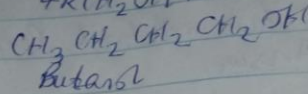 CH3 CH2 CH2 CH2 OH
Butanol